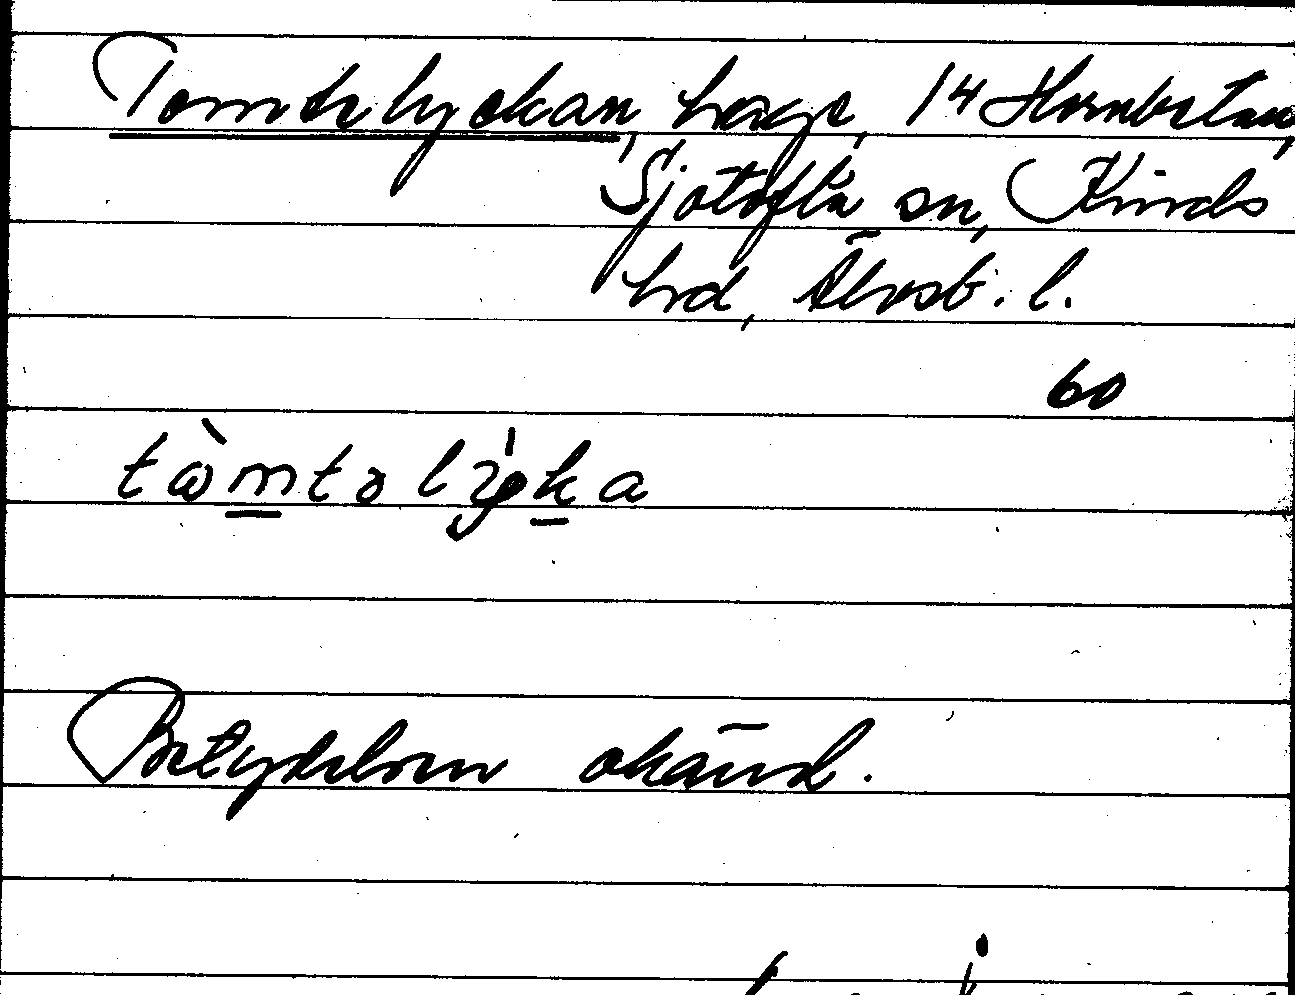 Tomtelyckan, hage, 14 Hornbetan,
Sjötofta sn, Kinds
hrd, Älvsb. l.
60
Betydelsen okänd.